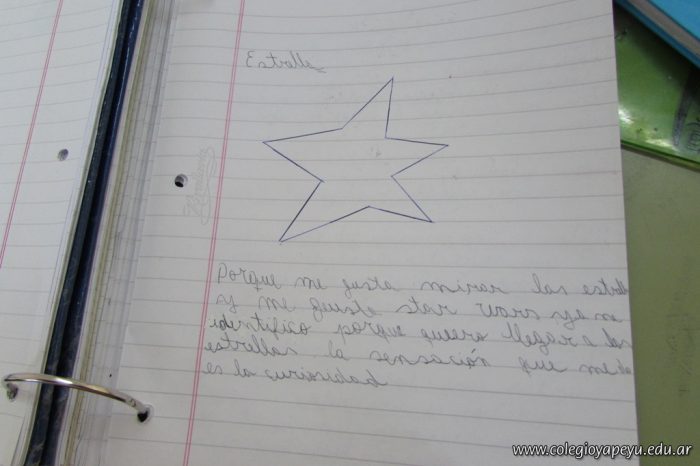 Estrella
Porque me gusta mirar las estrella
y me gusta star wars y a me
identifico porque quiero llegar a las
estrellas la sensación que me da
es la curiosidad
www.colegioyapeyu.edu.ar